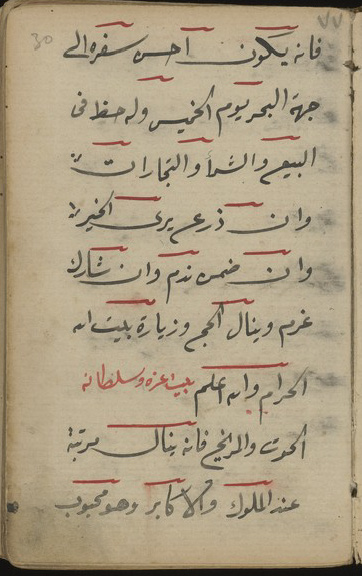 ٧٧
30
فانه يكون احسن سفره الى
جهة البحر يوم الخميس وله حظ فى
البيع والشرا والتجارات
وان زرع يرى الخير
وان ضمن ندم وان شارك
غرم وينال الحج وزيارة بيت الله
الحرام والله اعلم بيت عزه وسلطانه
الحوت والمريخ فانه ينال مرتبة
عند الملوك والاكابر وهو محبوب